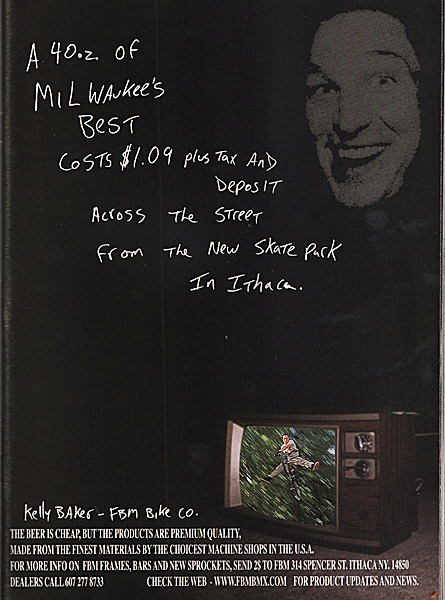 A 40.z. OF
MILWAUKEE'S
BEST
COSTS $1.09 plus Tax AND
DEPOSIT
Across The STREET
From The New Skate Park
In Ithaca.
Kelly BAKER - FBM Bike Co.
THE BEER IS CHEAP, BUT THE PRODUCTS ARE PREMIUM QUALITY,
MADE FROM THE FINEST MATERIALS BY THE CHOICEST MACHINE SHOPS IN THE U.S.A.
FOR MORE INFO ON FBM FRAMES, BARS AND NEW SPROCKETS, SEND 2$ TO FBM 314 SPENCER ST. ITHACA NY. 14850
DEALERS CALL 607 277 8733 CHECK THE WEB - WWW.FBMBMX.COM FOR PRODUCT UPDATES AND NEWS.